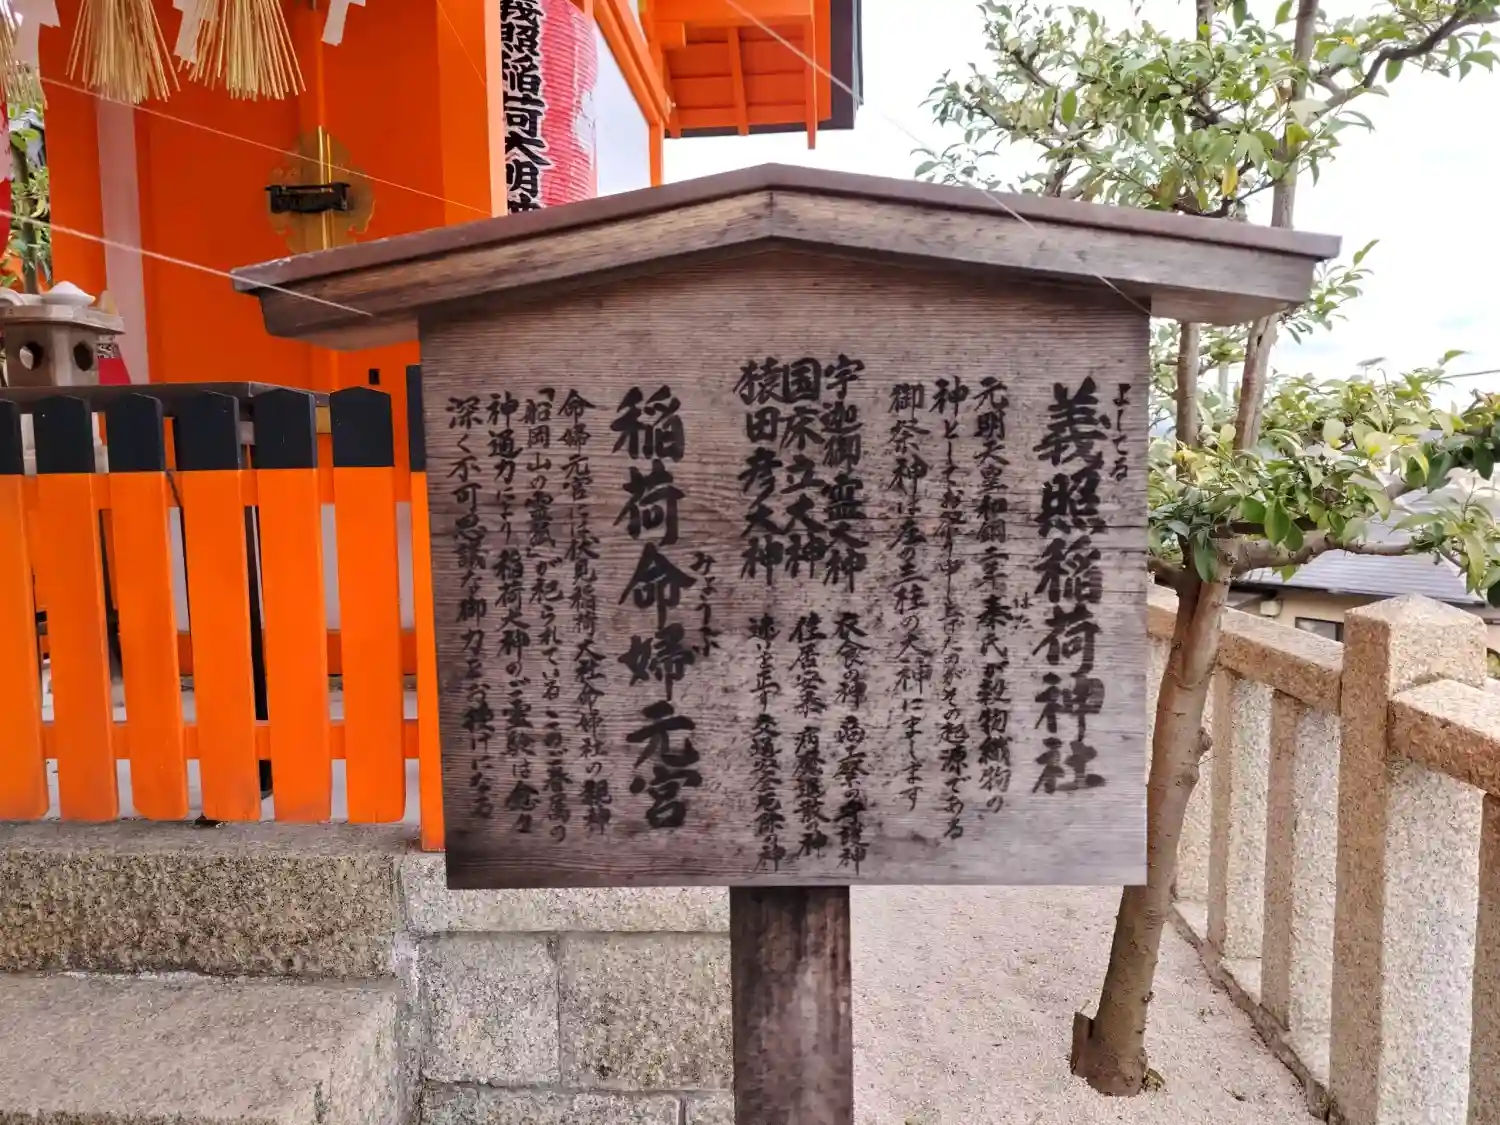 義照稲荷大明神
義照稲荷神社
よしてる
元明天皇和銅二年秦氏が穀物織物の
はた
神としてお祀り申し上げたのがその起源である
御祭神は左の三柱の大神にまします
宇迦御霊大神 衣食の神 商工業の守護神
国床立大神 住居安泰 病魔退散の神
猿田彦大神 迷いを正す 交通安全厄除の神
稲荷命婦元宮
みょうぶ
命婦元宮には伏見稲荷大社命婦社の親神
「船岡山の霊狐」が祀られている このご眷属の
神通力により 稲荷大神のご霊験は 愈々
深く不可思議な御力をお授けになる